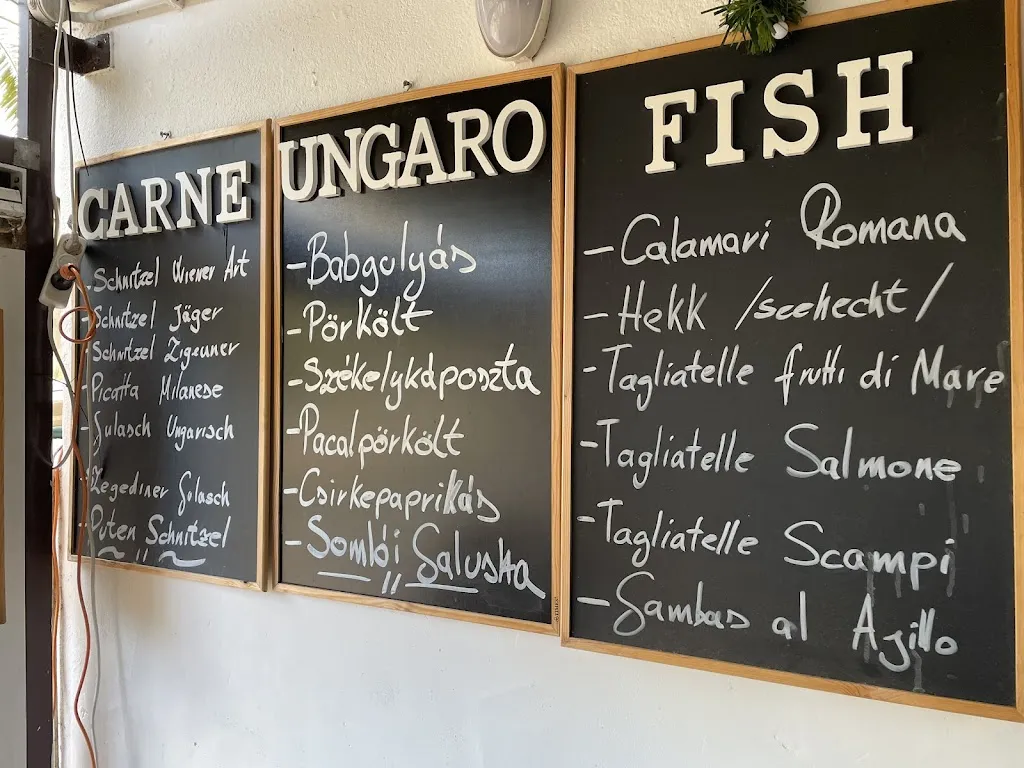 CARNE
- Schnitzel Wiener Art
- Schnitzel Jäger
- Schnitzel Zigeuner
- Picatta Milanese
- Gulasch Ungarisch
- Zegediner Gulasch
- Puten Schnitzel
UNGARO
- Babgulyás
- Pörkölt
- Székelykáposzta
- Pacalpörkölt
- Csirkepaprikás
- Somlói Galuska
FISH
- Calamari Romana
- Hekk /seehecht/
- Tagliatelle frutti di Mare
- Tagliatelle Salmone
- Tagliatelle Scampi
- Gambas al Ajillo